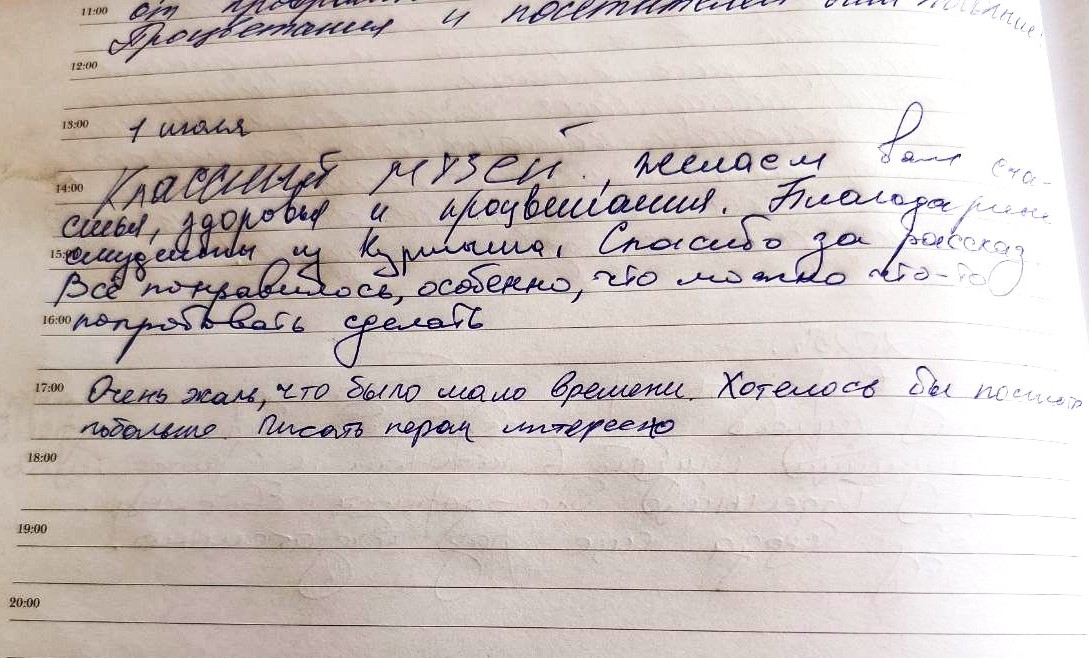 11:00 от
Процветания и посетителей
12:00
13:00 1 июля
14:00 Классный музей, желаем Вам сча-
стья, здоровья и процветания. Благодарные
15: студенты из Курмыша. Спасибо за рассказ.
Всё понравилось, особенно, что можно что-то
16:00 попробовать сделать
17:00 Очень жаль, что было мало времени. Хотелось бы
побольше. Писать пером интересно
18:00
19:00
20:00